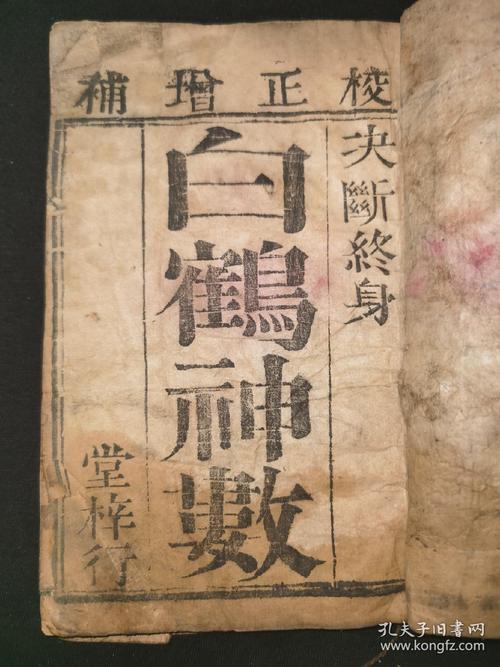 校正增補
決斷終身
白鶴神數
堂梓行
孔夫子旧书网
www.kongfz.com